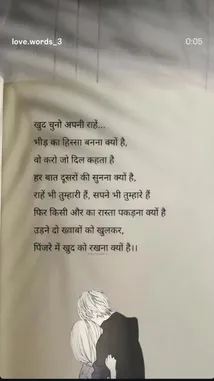 love.words_3
0:05
खुद चुनो अपनी राहें...
भीड़ का हिस्सा बनना क्यों है,
वो करो जो दिल कहता है
हर बात दूसरों की सुनना क्यों है,
राहें भी तुम्हारी हैं, सपने भी तुम्हारे हैं
फिर किसी और का रास्ता पकड़ना क्यों है
उड़ने दो ख्वाबों को खुलकर,
पिंजरे में खुद को रखना क्यों है।।